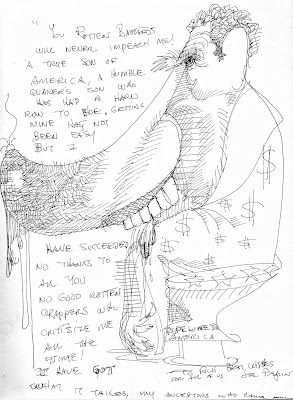 "You Rotten Bastards
will never impeach me!
A true son of
America, a humble
Quakers son who
has had a hard
row to hoe, getting
mine has not
been easy
But I
Have succeeded
no thanks to
all you
no good rotten
crappers who
critisize me
all the
time!
I have gott
what it takes, my ancestors who came
America
Best wishes
for all of us